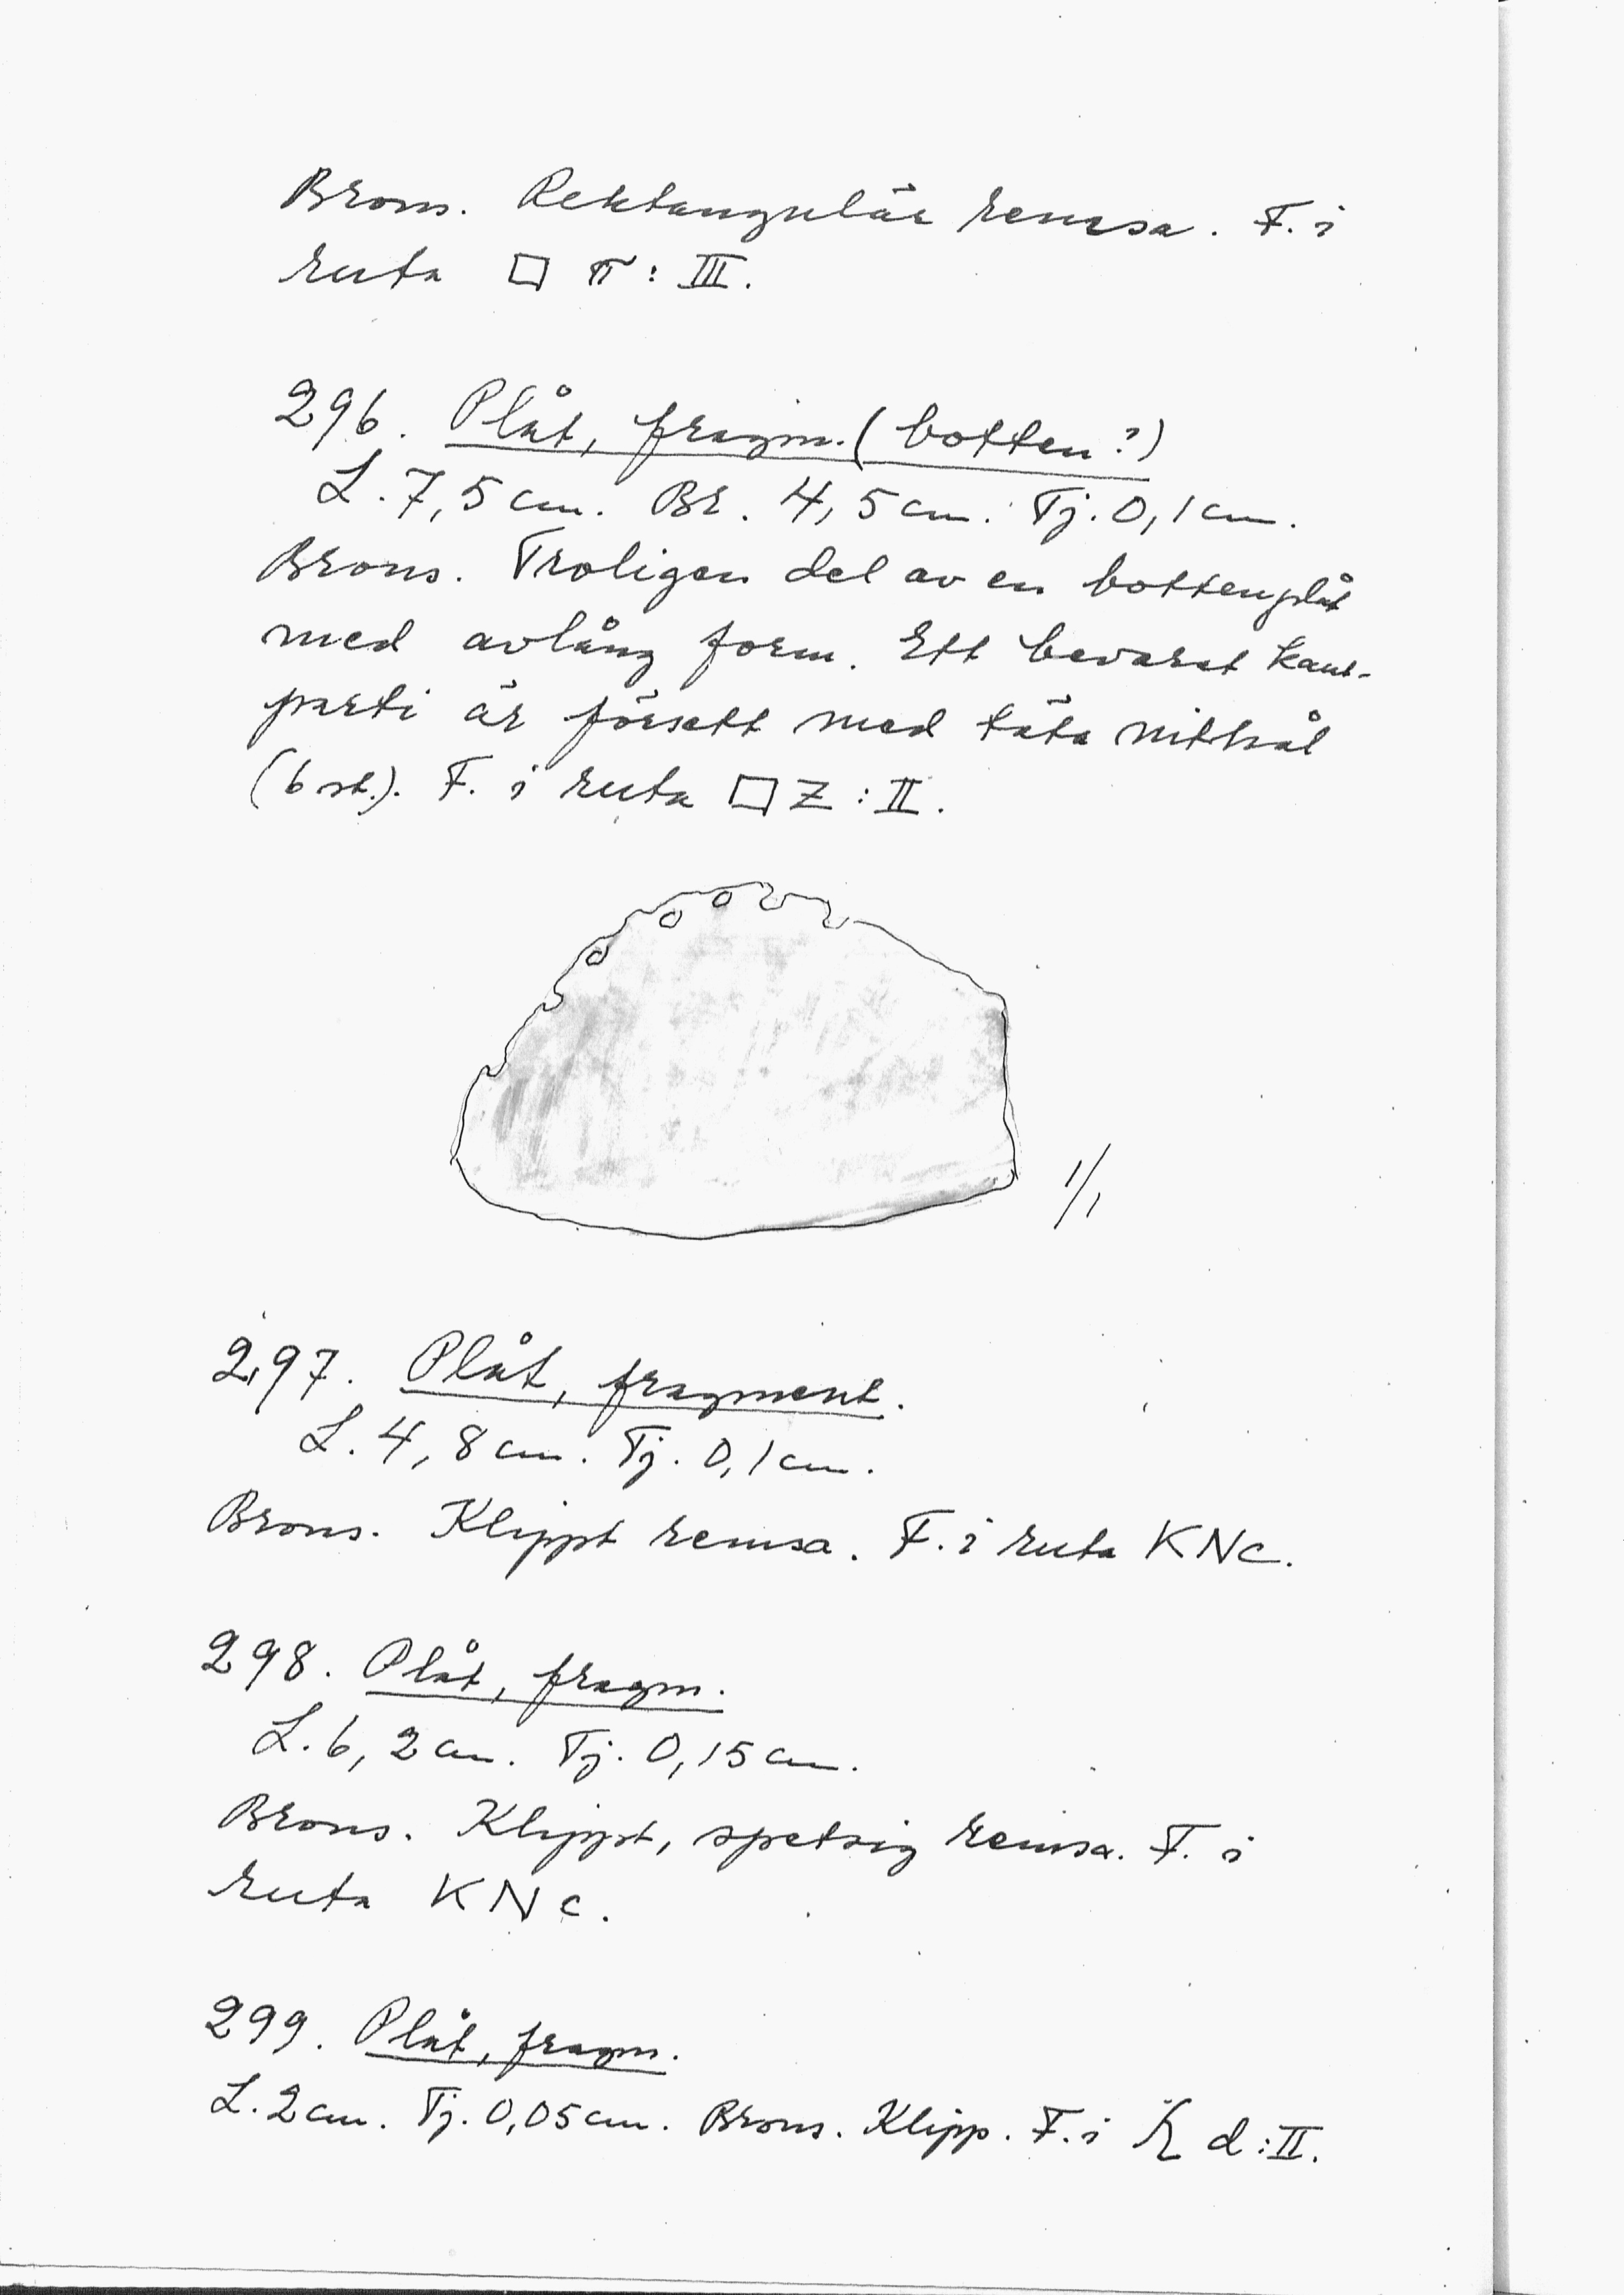 Brons. Rektangulär remsa. F. i
ruta □ π : III.
296. Plåt, fragm. (botten?)
L. 7,5 cm. Br. 4,5 cm. Tj. 0,1 cm.
Brons. Troligen del av en bottenplåt
med avlång form. Ett bevarat kant-
parti är försett med täta nithål
(6 st.). F. i ruta □ Z : II.
1/1
297. Plåt, fragment.
L. 4,8 cm. Tj. 0,1 cm.
Brons. Klippt remsa. F. i ruta KNc.
298. Plåt, fragm.
L. 6,2 cm. Tj. 0,15 cm.
Brons. Klippt, spetsig remsa. F. i
ruta KNc.
299. Plåt, fragm.
L. 2 cm. Tj. 0,05 cm. Brons. Klipp. F. i d : II.